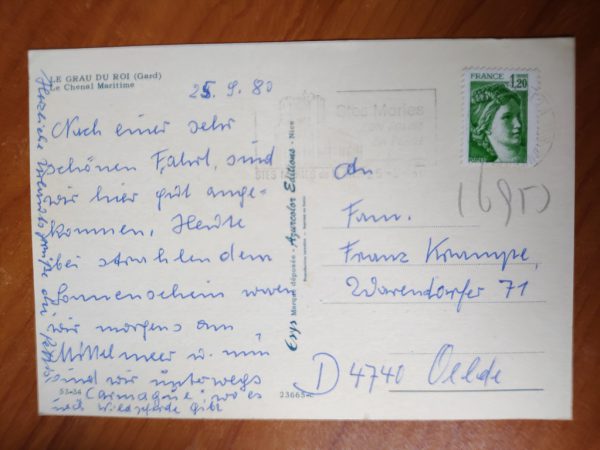 LE GRAU DU ROI (Gard)
Le Chenal Maritime
25.9.80
Nach einer sehr
schönen Fahrt, sind
wir hier gut ange-
kommen. Heute
bei strahlendem
Sonnenschein waren
wir morgens am
Mittelmeer u. nun
sind wir unterwegs
Carmague, wo es
noch Wildpferde gibt
Herzliche
53-34
23665
Esys Marque déposée - Azurcolor Editions - Nice
Stes Maries
FRANCE
1,20
An
Fam.
Franz Krampe,
Warendorfer 71
D 4740 Oelde